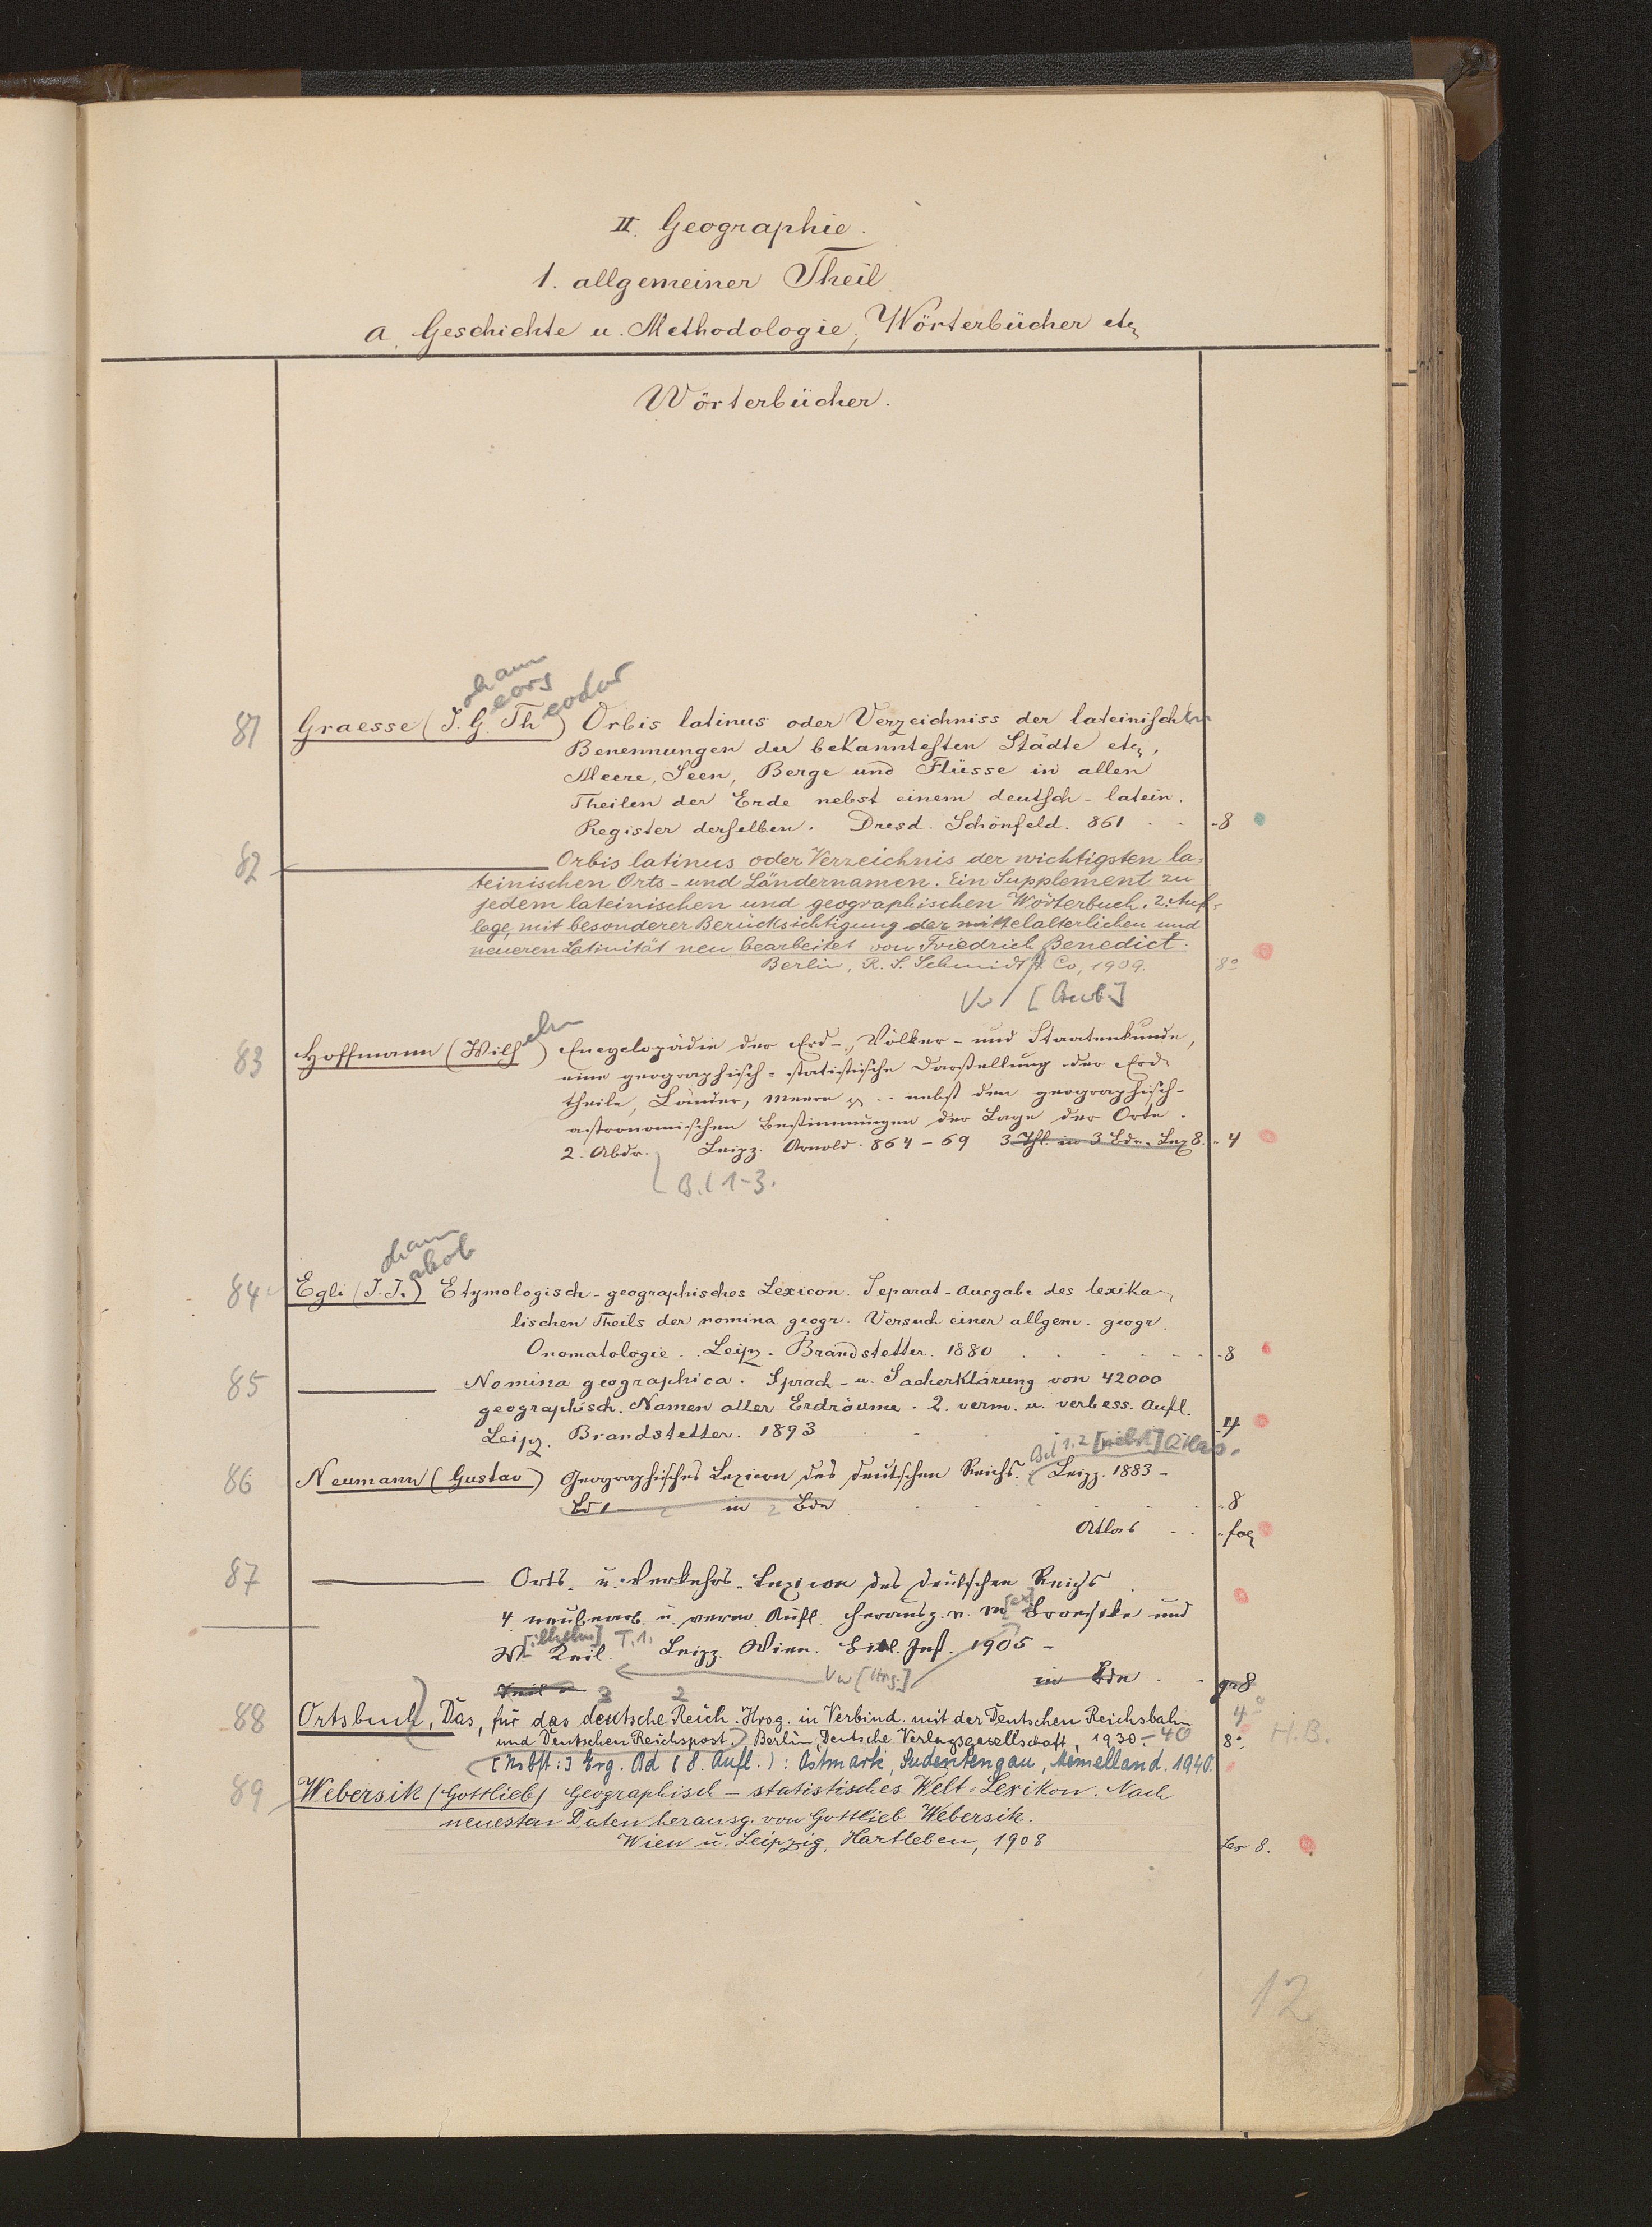 II. Geographie.
1. allgemeiner Theil.
a. Geschichte u. Methodologie, Wörterbücher etc
Wörterbücher.
ohann
eorg
eodor
81 Graesse (J. G. Th) Orbis latinus oder Verzeichniss der lateinischen
Benennungen der bekanntesten Städte etc,
Meere, Seen, Berge und Flüsse in allen
Theilen der Erde nebst einem deutsch-latein.
Register derselben. Dresd. Schönfeld. 861 . . 8
82 ——— Orbis latinus oder Verzeichnis der wichtigsten la-
teinischen Orts- und Ländernamen. Ein Supplement zu
jedem lateinischen und geographischen Wörterbuch. 2. Auf-
lage, mit besonderer Berücksichtigung der mittelalterlichen und
neueren Latinität neu bearbeitet von Friedrich Benedict.
Berlin, R. S. Schmidt & Co, 1909. 8°
Vw [Bearb.]
elm
83 Hoffmann (Wilh) Encyclopädie der Erd-, Völker- und Staatenkunde,
eine geographisch-statistische Darstellung der Erd-
theile, Länder, Meere pp .. nebst den geographisch-
astronomischen Bestimmungen der Lage der Orte.
2. Abdr. Leipz. Arnold. 864-69 3 Thl. in 3 Bdn. Lex 8. 4
Bd 1-3.
ohann
akob
84 Egli (J. J.) Etymologisch-geographisches Lexicon. Separat-Ausgabe des lexika-
lischen Theils der nomina geogr. Versuch einer allgem. geogr.
Onomatologie. Leipz. Brandstetter. 1880 . . . . . 8
85 ——— Nomina geographica. Sprach- u. Sacherklärung von 42000
geographisch. Namen aller Erdräume. 2. verm. u. verbess. Aufl.
Leipz. Brandstetter. 1893 . . . 4
Bd 1.2 [nebst] Atlas.
86 Neumann (Gustav) Geographisches Lexicon des deutschen Reichs. Leipz. 1883-
Bd 1 in 2 Bdn . . . 8
Atlas . . fol
87 ——— Orts- u. Verkehrs-Lexicon des deutschen Reichs
4. neubearb. u. verm. Aufl. herausg. v. M[ax] Broesike und
W[ilhelm] Keil. T. 1. Leipz. Wien. Bibl. Inst. 1905 -
Vw [Hrsg.] in Bdn . . gr 8
3 2
88 Ortsbuch, Das, für das deutsche Reich. Hrsg. in Verbind. mit der Deutschen Reichsbahn 4°
und Deutschen Reichspost. Berlin, Deutsche Verlagsgesellschaft, 1930.-40 8° H.B.
[Nebst:] Erg. Bd (8. Aufl.): Ostmark, Sudetengau, Memelland. 1940.
89 Webersik (Gottlieb) Geographisch-statistisches Welt-Lexikon. Nach
neuesten Daten herausg. von Gottlieb Webersik.
Wien u. Leipzig, Hartleben, 1908 Lex 8.
12